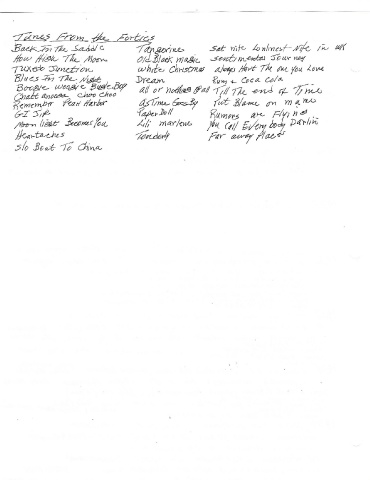 Tunes From the Forties
Back In The Saddle Tangerine Sat nite Lonliest Nite in wk
How High The Moon Old Black magic sentimental Journey
Tuxedo Junction White Christmas always Hurt The one you Love
Blues In The Night Dream Rum & Coca Cola
Boogie Woogie Bugle Boy all or nothing at all Till The end of Time
Chattanooga Choo Choo
Remember Pearl Harbor As Time Goes By Put Blame on mame
G-I Jive Paper Doll Rumors are Flying
Moon light Becomes You Lili marlene You Call Everybody Darlin
Heartaches Tenderly Far away Places
Slo Boat To China